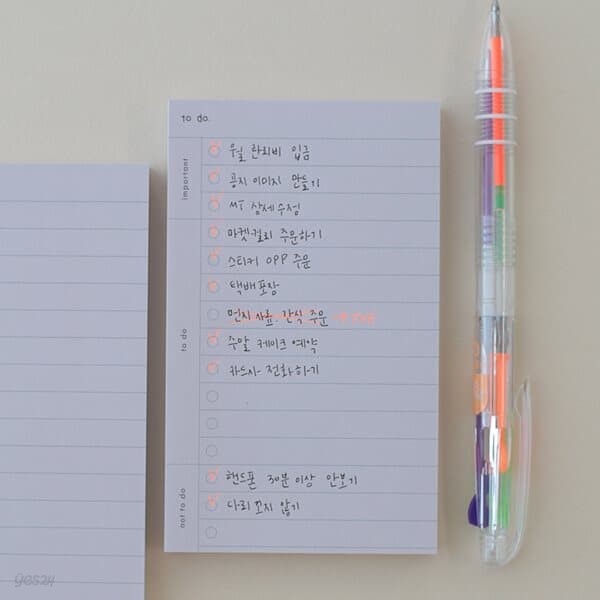 to do.
important
월 관리비 입금
공지 이미지 만들기
MT 상세수정
to do
마켓컬리 주문하기
스티커 OPP 주문
택배포장
먼지 사료, 간식 주문
주말 케이크 예약
카드사 전화하기
not to do
핸드폰 30분 이상 안보기
다리 꼬지 않기
yes24